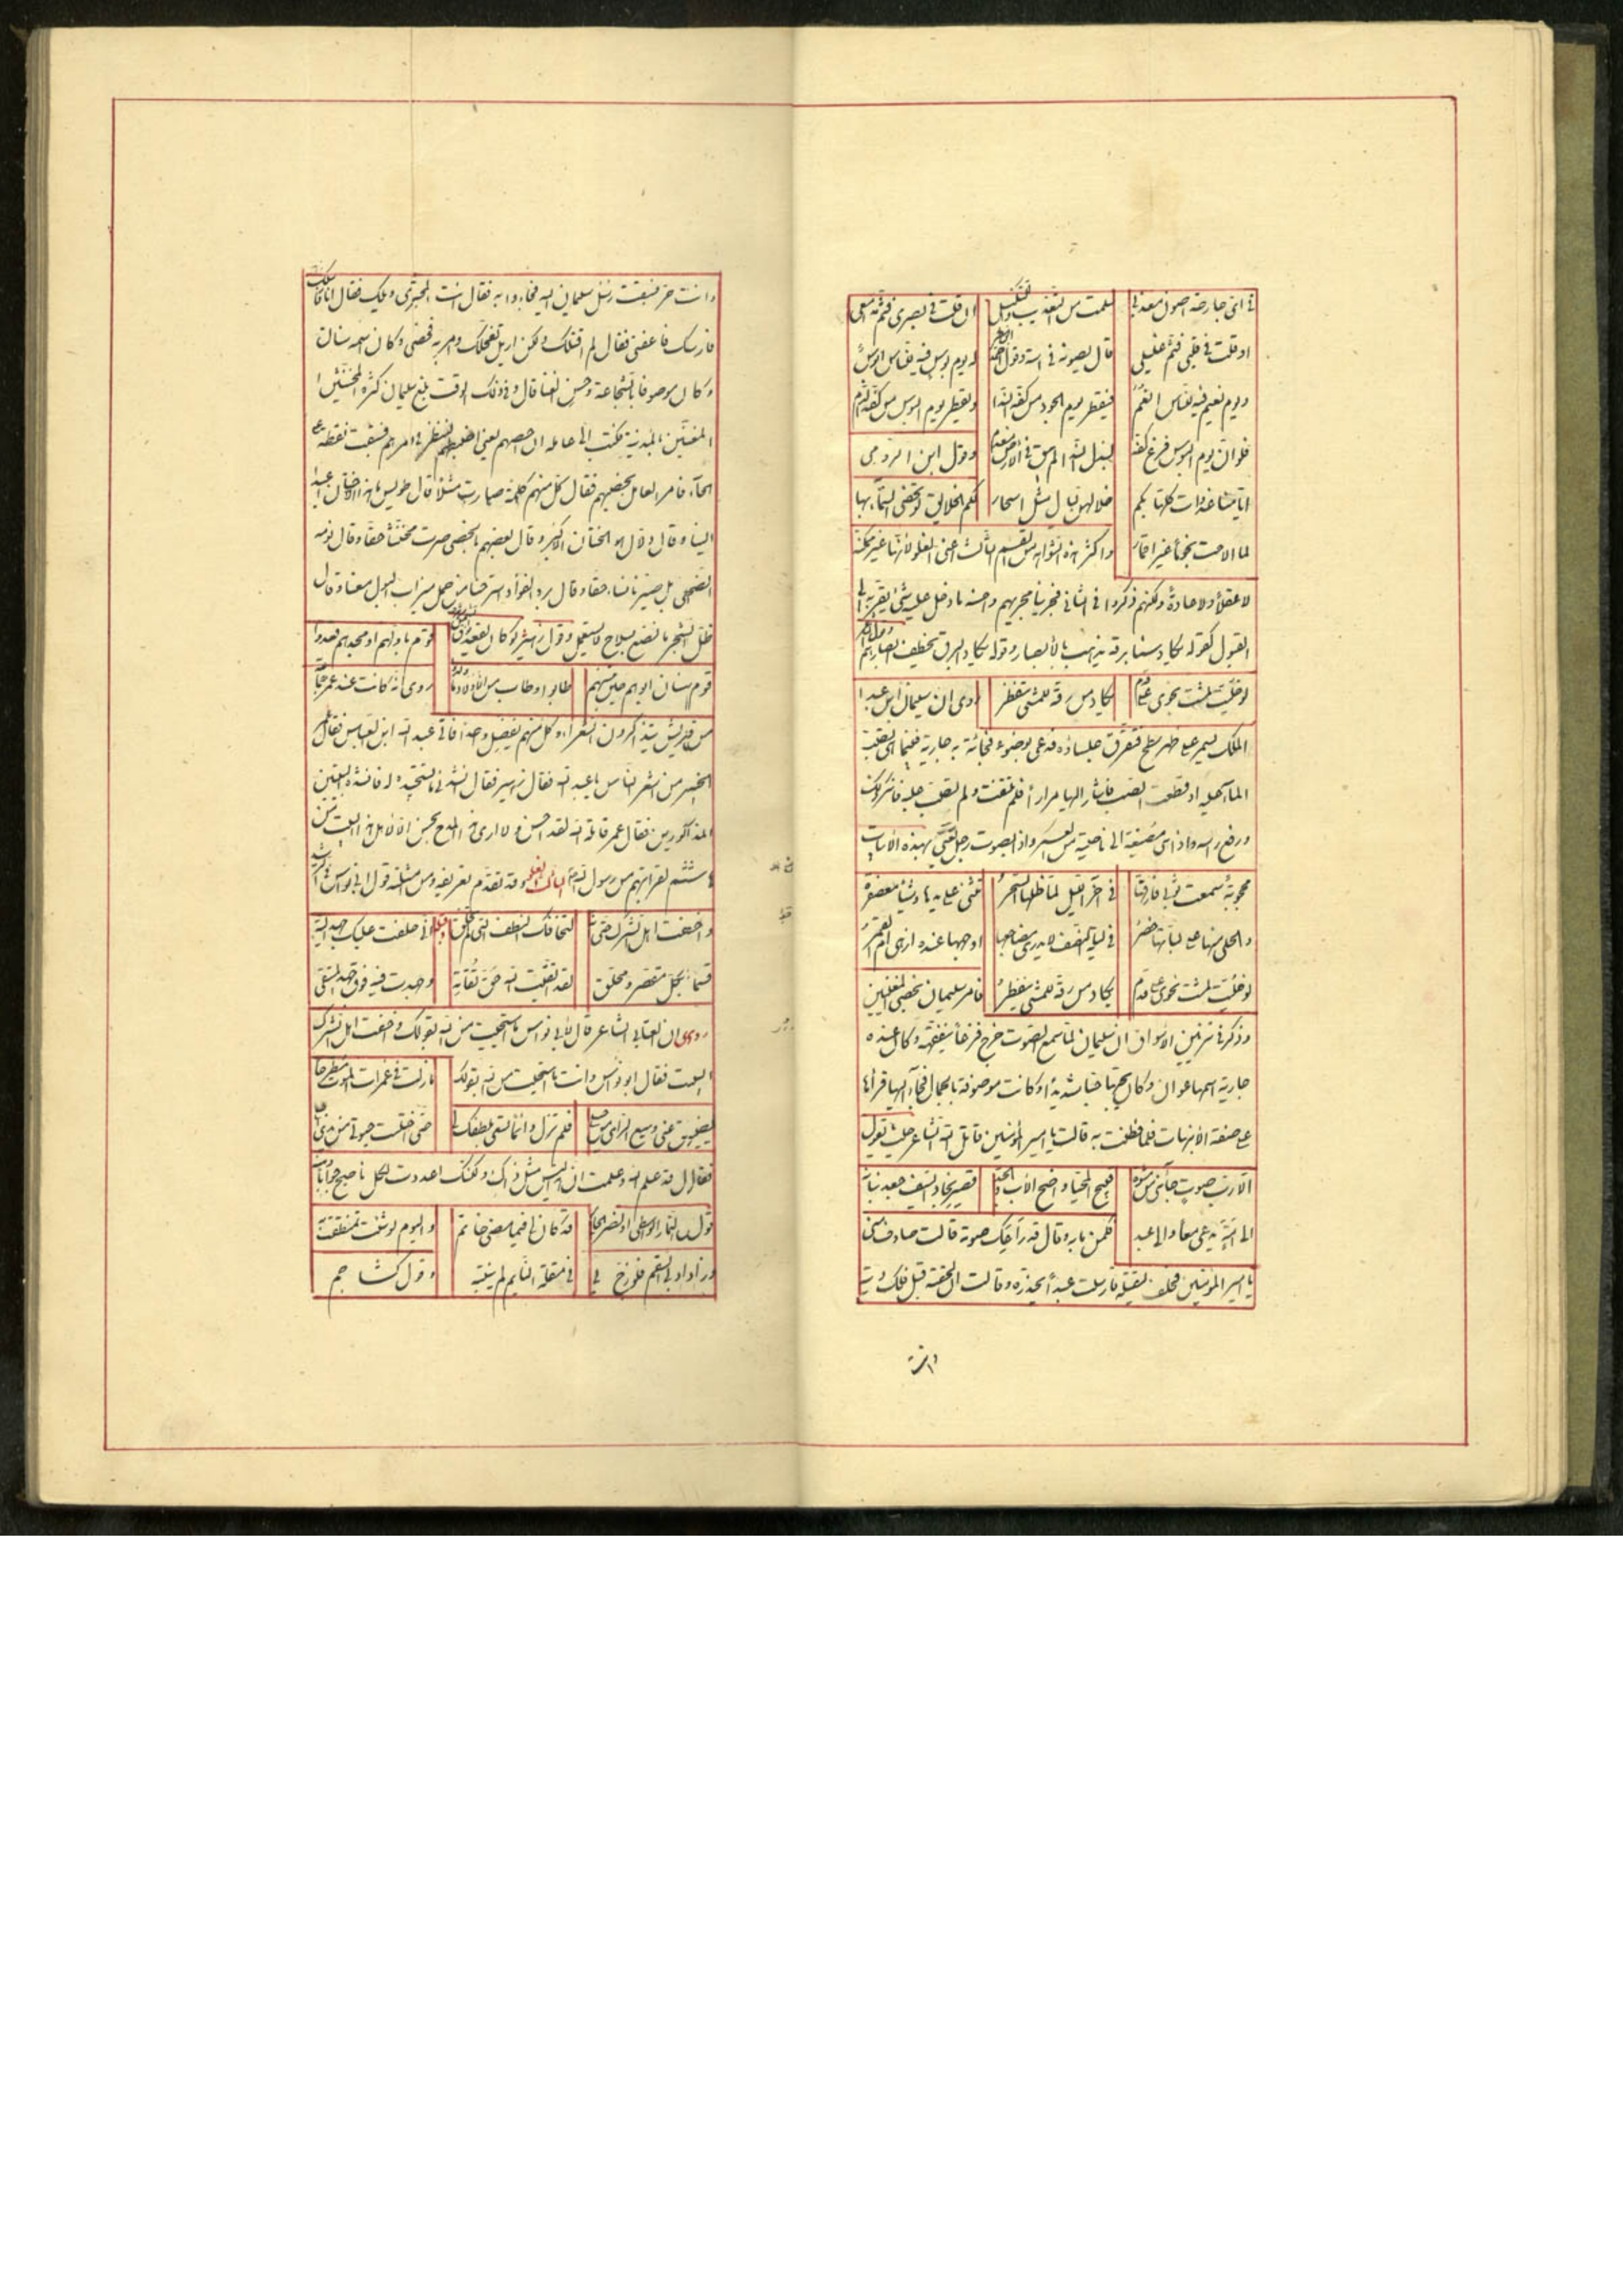 في اي جارحة اصون معذبي سلمت من التعذيب والتنكيل ان قلت في بصري فثم مدمعي
او قلت في قلبي فثم غليلي قال يصونه في استه وقول له يوم بؤس فيه للناس ابؤس
ويوم نعيم فيه للناس انعم فيقطر يوم الجود من كفه الندا ويقطر يوم البؤس من كفه الدم
فلو ان يوم البؤس فرغ كفه لبذل الندا لم يبق في الارض وقول ابن الرومي
خلائق كلها بكم
لما الاحت نجما غير اقمار واكثر هذه الشواهد من القسم الثالث اعني الغلو لانها غير ممكنة
لا عقلا ولا عادة ولكنهم ذكروا في الثاني فجرينا مجريهم واحسنه ما دخل عليه شيء يقربه الى
القبول كقوله يكاد سنا برقه يذهب بالابصار وقوله يكاد البرق يخطف ابصارهم
لو خليت لمشت نحوي على قدم يكاد من رقة للمشي ينفطر روى ان سليمان ابن عبد
الملك سمر على ظهر سطح فتفرق جلساؤه فدعى بوضوء فجائة به جارية فبينما هي تصب
الماء عليه اذ قطعت الصب فاشار اليها مرارا فلم تلتفت ولم تصب عليه فانكر ذلك
ورفع راسه واذا هي مصغية الى ناحية من العسكر واذا بصوت رجل يغني بهذه الابيات
محجوبة سمعت صوتي فارقها في آخر الليل لما ظلها السحر تثني على جيدها معصفرة
والحلي منها على لباتها خضر في ليلة النصف لا يدري مضاجعها اوجهها عنده ازهى ام القمر
لو خليت لمشت نحوي على قدم يكاد من رقة للمشي ينفطر فامر سليمان بخصي المغنين
وذكر في تزيين الاسواق ان سليمان لما سمع الصوت خرج فزعا يتفقهه وكان عنده
جارية اسمها عوان وكان يحبها حبا شديدا وكانت موصوفة بالجمال فجاء اليها فرآها
على صفة الابيات فلما فطنت به قالت يا امير المؤمنين قاتل الله الشاعر حيث يقول
الا رب صوت جائني من مشوه قبيح المحيا واضع الاب والجد قصير نجاد السيف جعد بنانه
الى امة يدعى معا والى عبد فكمن ما به وقال قد راعك صوته قالت صادف مني
يا امير المؤمنين فحلف ليقتله فارسلت عبدا يحذره وقالت ان لحقته قبل فلك دية
وانت
وانت حر فسبقت رسل سليمان اليه فجاءوا به فقال انت المجترى ويلك فقال انا
فارسك فاعفني فقال لم اقتلك ولكن ازيل فحلك وامر به فخصى وكان اسمه سنان
وكان موصوفا بالشجاعة وحسن الغنا قال وفي ذلك الوقت بلغ سليمان كثرة المخنثين
المغنين بالمدينة فكتب الى عامله ان احصهم يعني اضبطهم لننظر في امرهم فسبقت نقطة على
الحاء فامر العامل بخصيهم فقال كل منهم كلمة صارت مثلا قال طويس ما هذا الا ختان اعيد
الينا وقال دلال هو الختان الاكبر وقال بعضهم بالخصي صرت مخنثا حقا وقال نومة
الضحى بل صيرنا نساء حقا وقال برد الفؤاد استرحنا من حمل ميزاب البول معنا وقال
ظل الشجر ما نصنع بسلاح لا يستعمل وقول زهير لو كان يقعد فوق قوم باولهم او مجدهم قعدوا
قوم سنان ابوهم حين تنسبهم طابوا وطاب من الاولاد ما ولدوا روى انه كانت عند عمر جماعة
من قريش يتذاكرون الشعراء وكل منهم يفضل واحدا فاتى عبد الله ابن العباس فقال
اخبر من اشعر الناس يا عبد الله فقال زهير فقال انشدني ما تستجيده له فانشده البيتين
المذكورين فقال عمر قاتله الله لقد احسن ولا ارى هذا المدح يحسن الا لاهل هذا البيت من
هاشم لقرابتهم من رسول الله الثالث الغلو وقد تقدم تعريفه ومن امثلته قول ابي نواس في الرشيد
واخفت اهل الشرك حتى انه لتخافك النطف التي لم تخلق وقوله اني حلفت عليك جهد الية
قسما بكل مقصر ومحلق لقد اتقيت الله حق تقاته وجهدت فيه فوق جهد المتقي
روى ان العتابي الشاعر قال لابي نواس ما استحييت من الله بقولك واخفت اهل الشرك
البيت فقال ابو نواس وانت ما استحييت من الله بقولك ما زلت في غمرات الموت مطرحا
يضيق عني وسيع الراي من حيلي فلم تزل دائما تسعى بلطفك لي حتى اختلست حيوتي من يدي اجلي
فقال قد علم الله وعلمت ان ليس مثل ذاك ولكنك اعددت لكل ناصح جوابا
قد كان لي فيما مضى خاتم واليوم لو شئت تمنطقت به
وزاد بي السقم فلو زج بي في مقلة النايم لم ينتبه وقول كشاجم